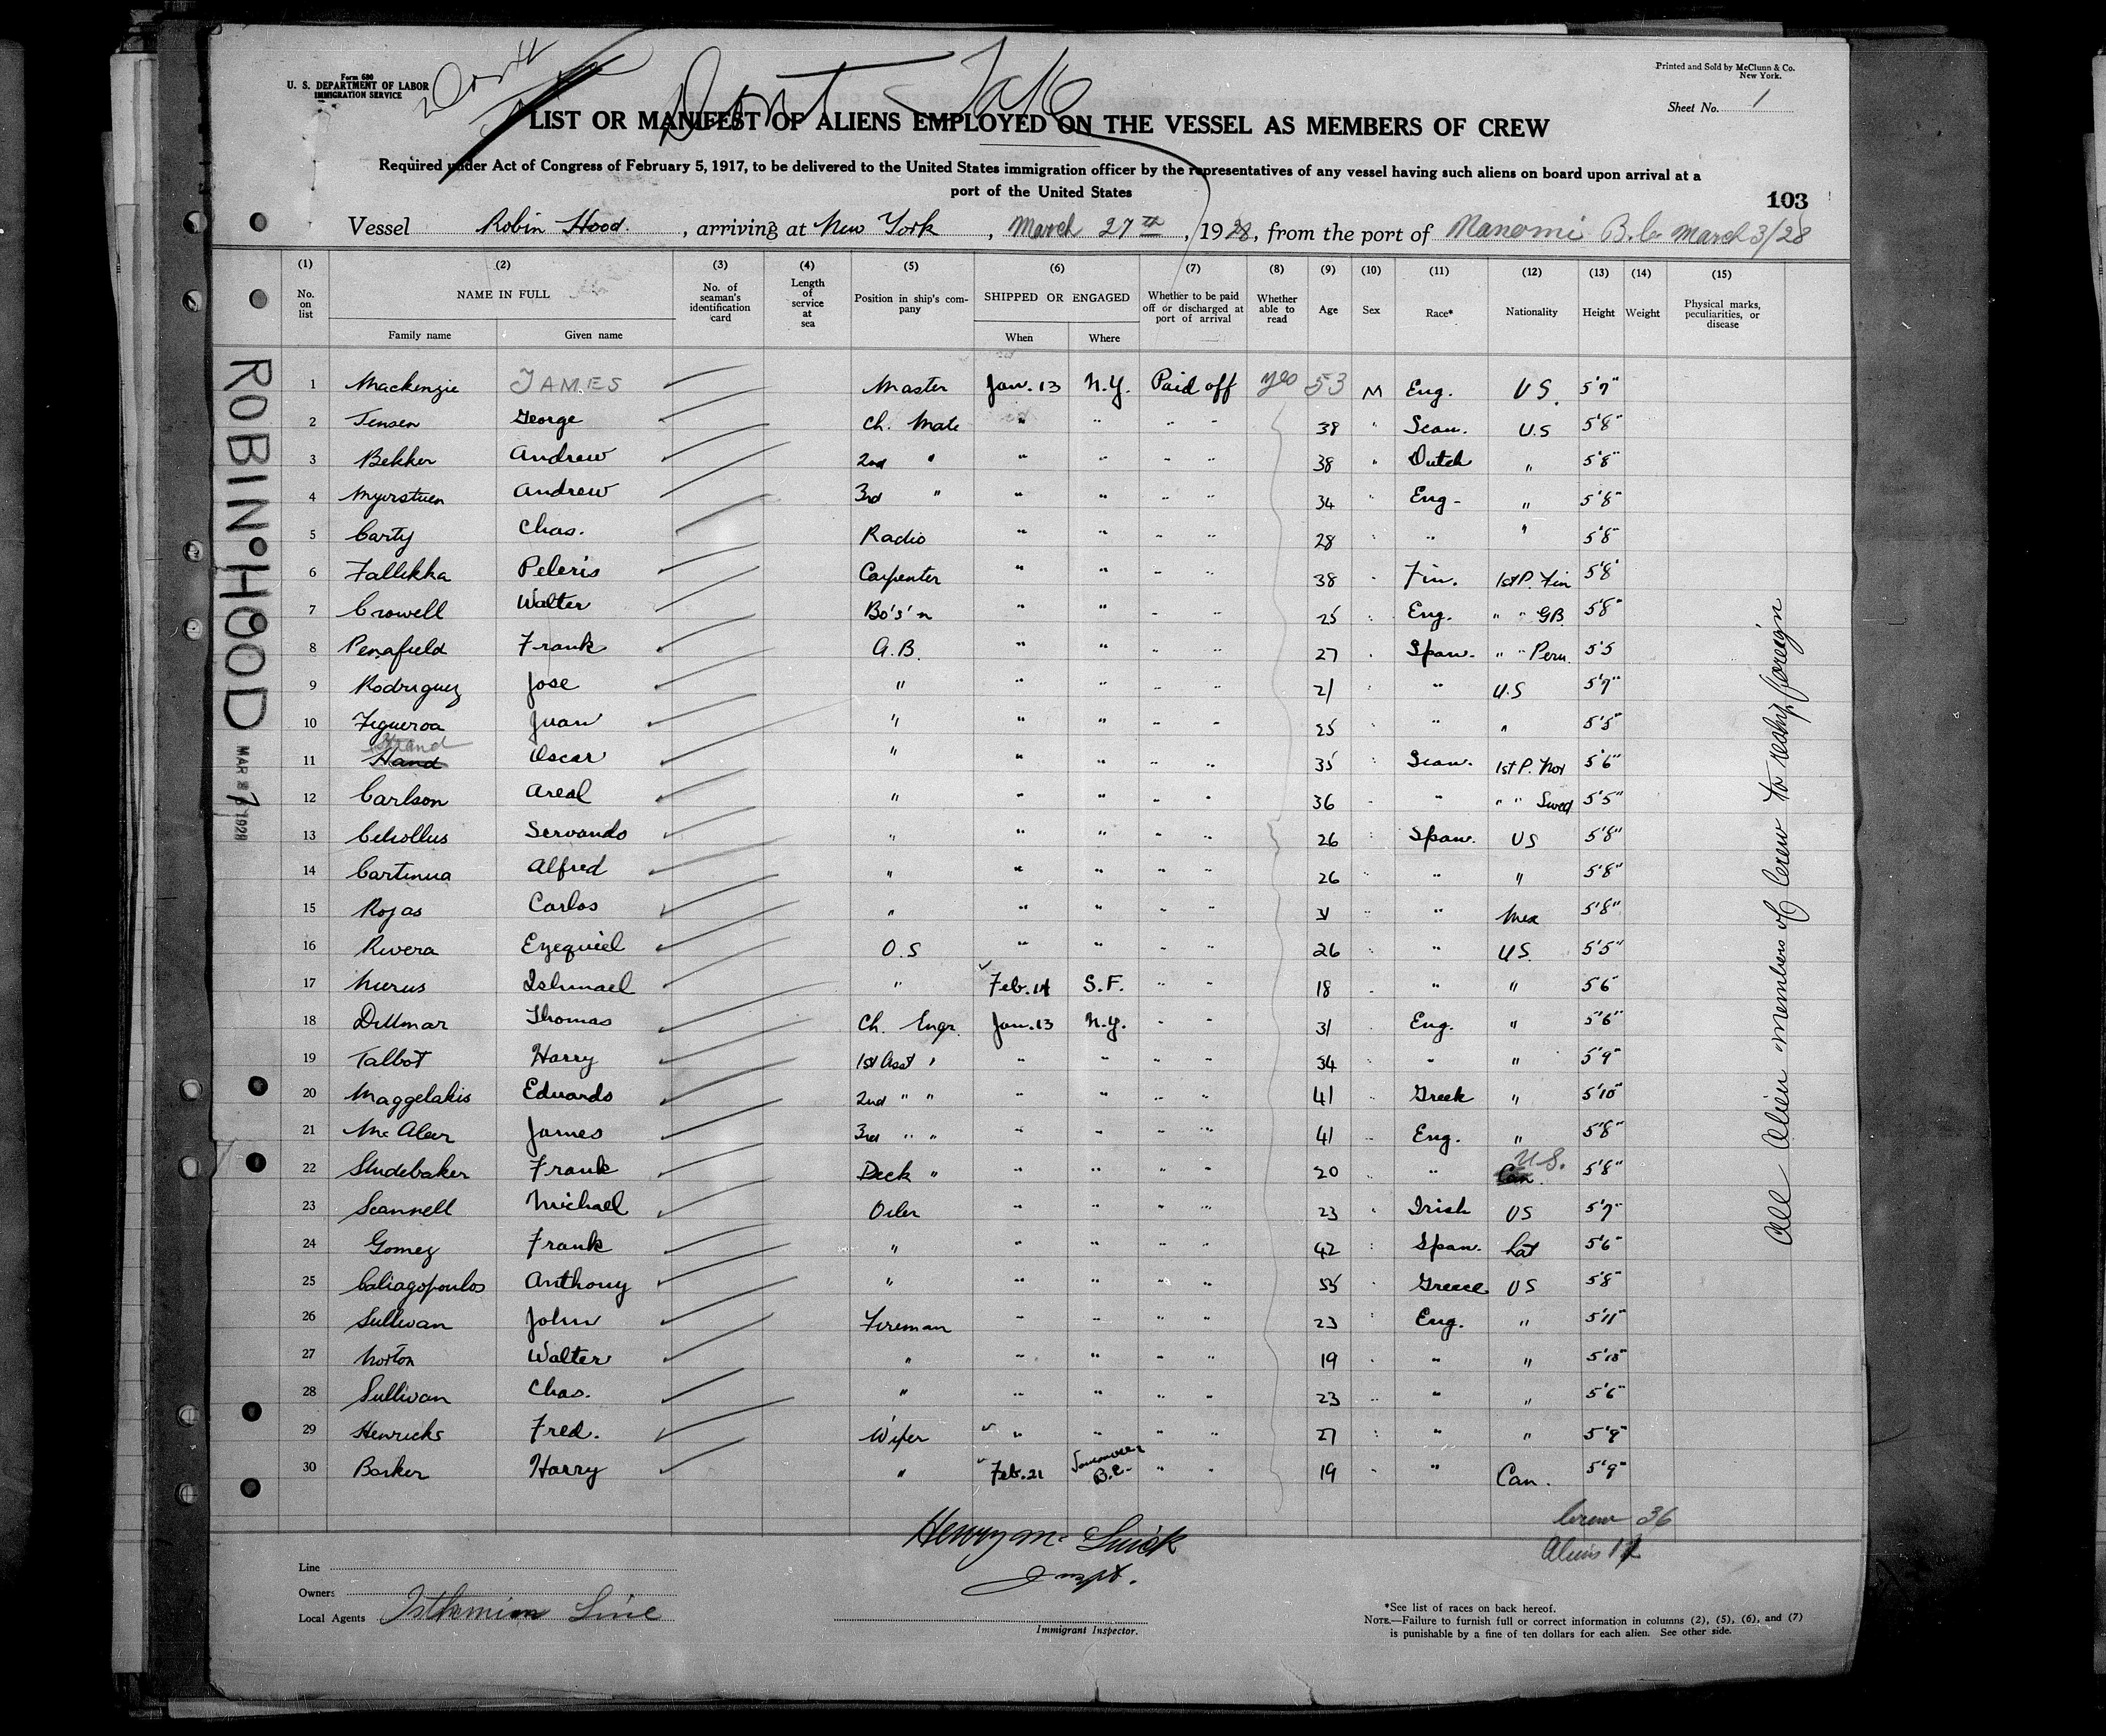 Form 680
U. S. DEPARTMENT OF LABOR
IMMIGRATION SERVICE
Dont
Dont Take
Printed and Sold by McClunn & Co.
New York.
Sheet No. 1
LIST OR MANIFEST OF ALIENS EMPLOYED ON THE VESSEL AS MEMBERS OF CREW
Required under Act of Congress of February 5, 1917, to be delivered to the United States immigration officer by the representatives of any vessel having such aliens on board upon arrival at a
port of the United States
103
Vessel Robin Hood. , arriving at New York , March 27th , 1928, from the port of Nanomi B.C. March 3/28
(1) (2) (3) (4) (5) (6) (7) (8) (9) (10) (11) (12) (13) (14) (15)
No. on list NAME IN FULL No. of seaman's identification card Length of service at sea Position in ship's company SHIPPED OR ENGAGED Whether to be paid off or discharged at port of arrival Whether able to read Age Sex Race* Nationality Height Weight Physical marks, peculiarities, or disease
Family name Given name When Where
1 Mackenzie JAMES Master Jan. 13 N.Y. Paid off yes 53 M Eng. US. 5'7"
2 Jensen George Ch. Mate " " " " 38 " Scan. U.S 5'8"
3 Bekker Andrew 2nd " " " " " 38 " Dutch " 5'8"
4 Myurstuen Andrew 3rd " " " " " 34 " Eng- " 5'8"
5 Carty Chas. Radio " " " " 28 " " " 5'8"
6 Fallikka Peleris Carpenter " " " " 38 " Fin. 1st P. Fin 5'8"
7 Crowell Walter Bo's'n " " " " 25 " Eng. " " GB. 5'8"
8 Penafield Frank A.B. " " " " 27 " Span. " " Peru. 5'5
9 Rodriguez Jose " " " " " 21 " " U.S 5'7"
10 Figueroa Juan " " " " " 25 " " " 5'5"
Strand
11 Hand Oscar " " " " " 35 " Scan. 1st P. Nor 5'6"
12 Carlson Areal " " " " " 36 " " " " Swed 5'5"
13 Servando " " " " " 26 " Span. US 5'8"
14 Cartinua Alfred " " " " " 26 " " " 5'8"
15 Rojas Carlos " " " " " 31 " " Mex 5'8"
16 Rivera Ezequiel O.S " " " " 26 " " US. 5'5"
17 Ishmael " Feb. 14 S.F. " " 18 " " " 5'6"
18 Dittmar Thomas Ch. Engr. Jan. 13 N.Y. " " 31 Eng. " 5'6"
19 Talbot Harry 1st Asst " " " " " 34 " " " 5'9"
20 Maggelakis Eduardo 2nd " " " " " " 41 " Greek " 5'10"
21 McAleer James 3rd " " " " " " 41 " Eng. " 5'8"
22 Studebaker Frank Deck " " " " " 20 " " Can. U.S. 5'8"
23 Scannell Michael Oiler " " " " 23 " Irish US 5'7"
24 Gomez Frank " " " " " 42 " Span. Lat 5'6"
25 Caliagopoulos Anthony " " " " " 35 " Greece US 5'8"
26 Sullivan John Fireman " " " " 23 " Eng. " 5'11"
27 Norton Walter " " " " " 19 " " " 5'10"
28 Sullivan Chas. " " " " " 23 " " " 5'6"
29 Henricks Fred. Wiper " " " " 27 " " " 5'9"
30 Barker Harry " Feb. 21 Vancouver B.C. " " 19 " " Can. 5'9"
ROBIN HOOD
MAR 27 1928
All Alien members of Crew to reship foreign
Crew 36
Aliens 12
Line
Owners
Local Agents Isthmian Line
Henry Mc
Inspt.
Immigrant Inspector.
*See list of races on back hereof.
NOTE.—Failure to furnish full or correct information in columns (2), (5), (6), and (7)
is punishable by a fine of ten dollars for each alien. See other side.